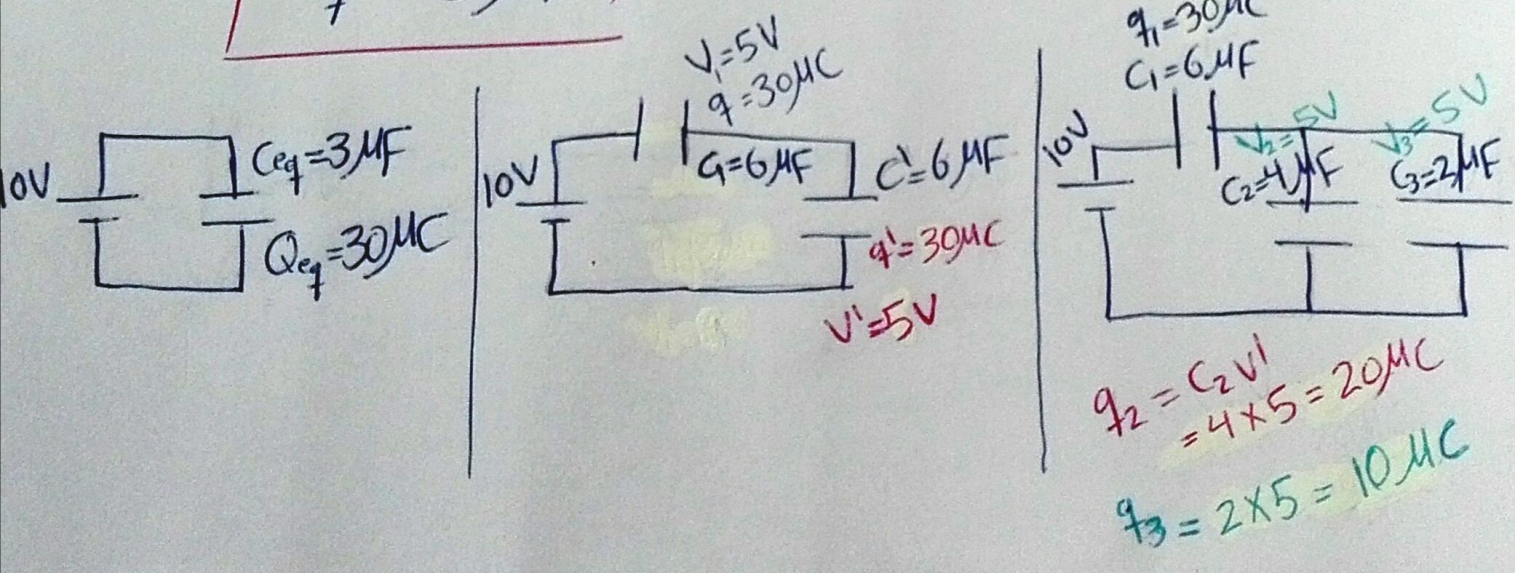 10V
Ceq=3μF
Qeq=30μC
V₁=5V
q=30μC
10V
C₁=6μF
C'=6μF
q'=30μC
V'=5V
q₁=30μC
C₁=6μF
10V
V₂=5V
V₃=5V
C₂=4μF
C₃=2μF
q₂=C₂V'
=4×5=20μC
q₃=2×5=10μC